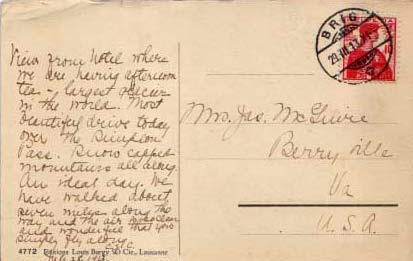 View from hotel where
we are having afternoon
tea - largest glacier
in the world. Most
beautiful drive today
over the Simplon
Pass. Snow capped
mountains all along
An ideal day. We
have walked about
seven miles along the
way and the air is so clear
and wonderful that you
simply fly along
BRIG
10
Mrs. Jas. McGuire
Berryville
Va
U.S.A.
4772 Editions Louis Burgy & Cie., Lausanne